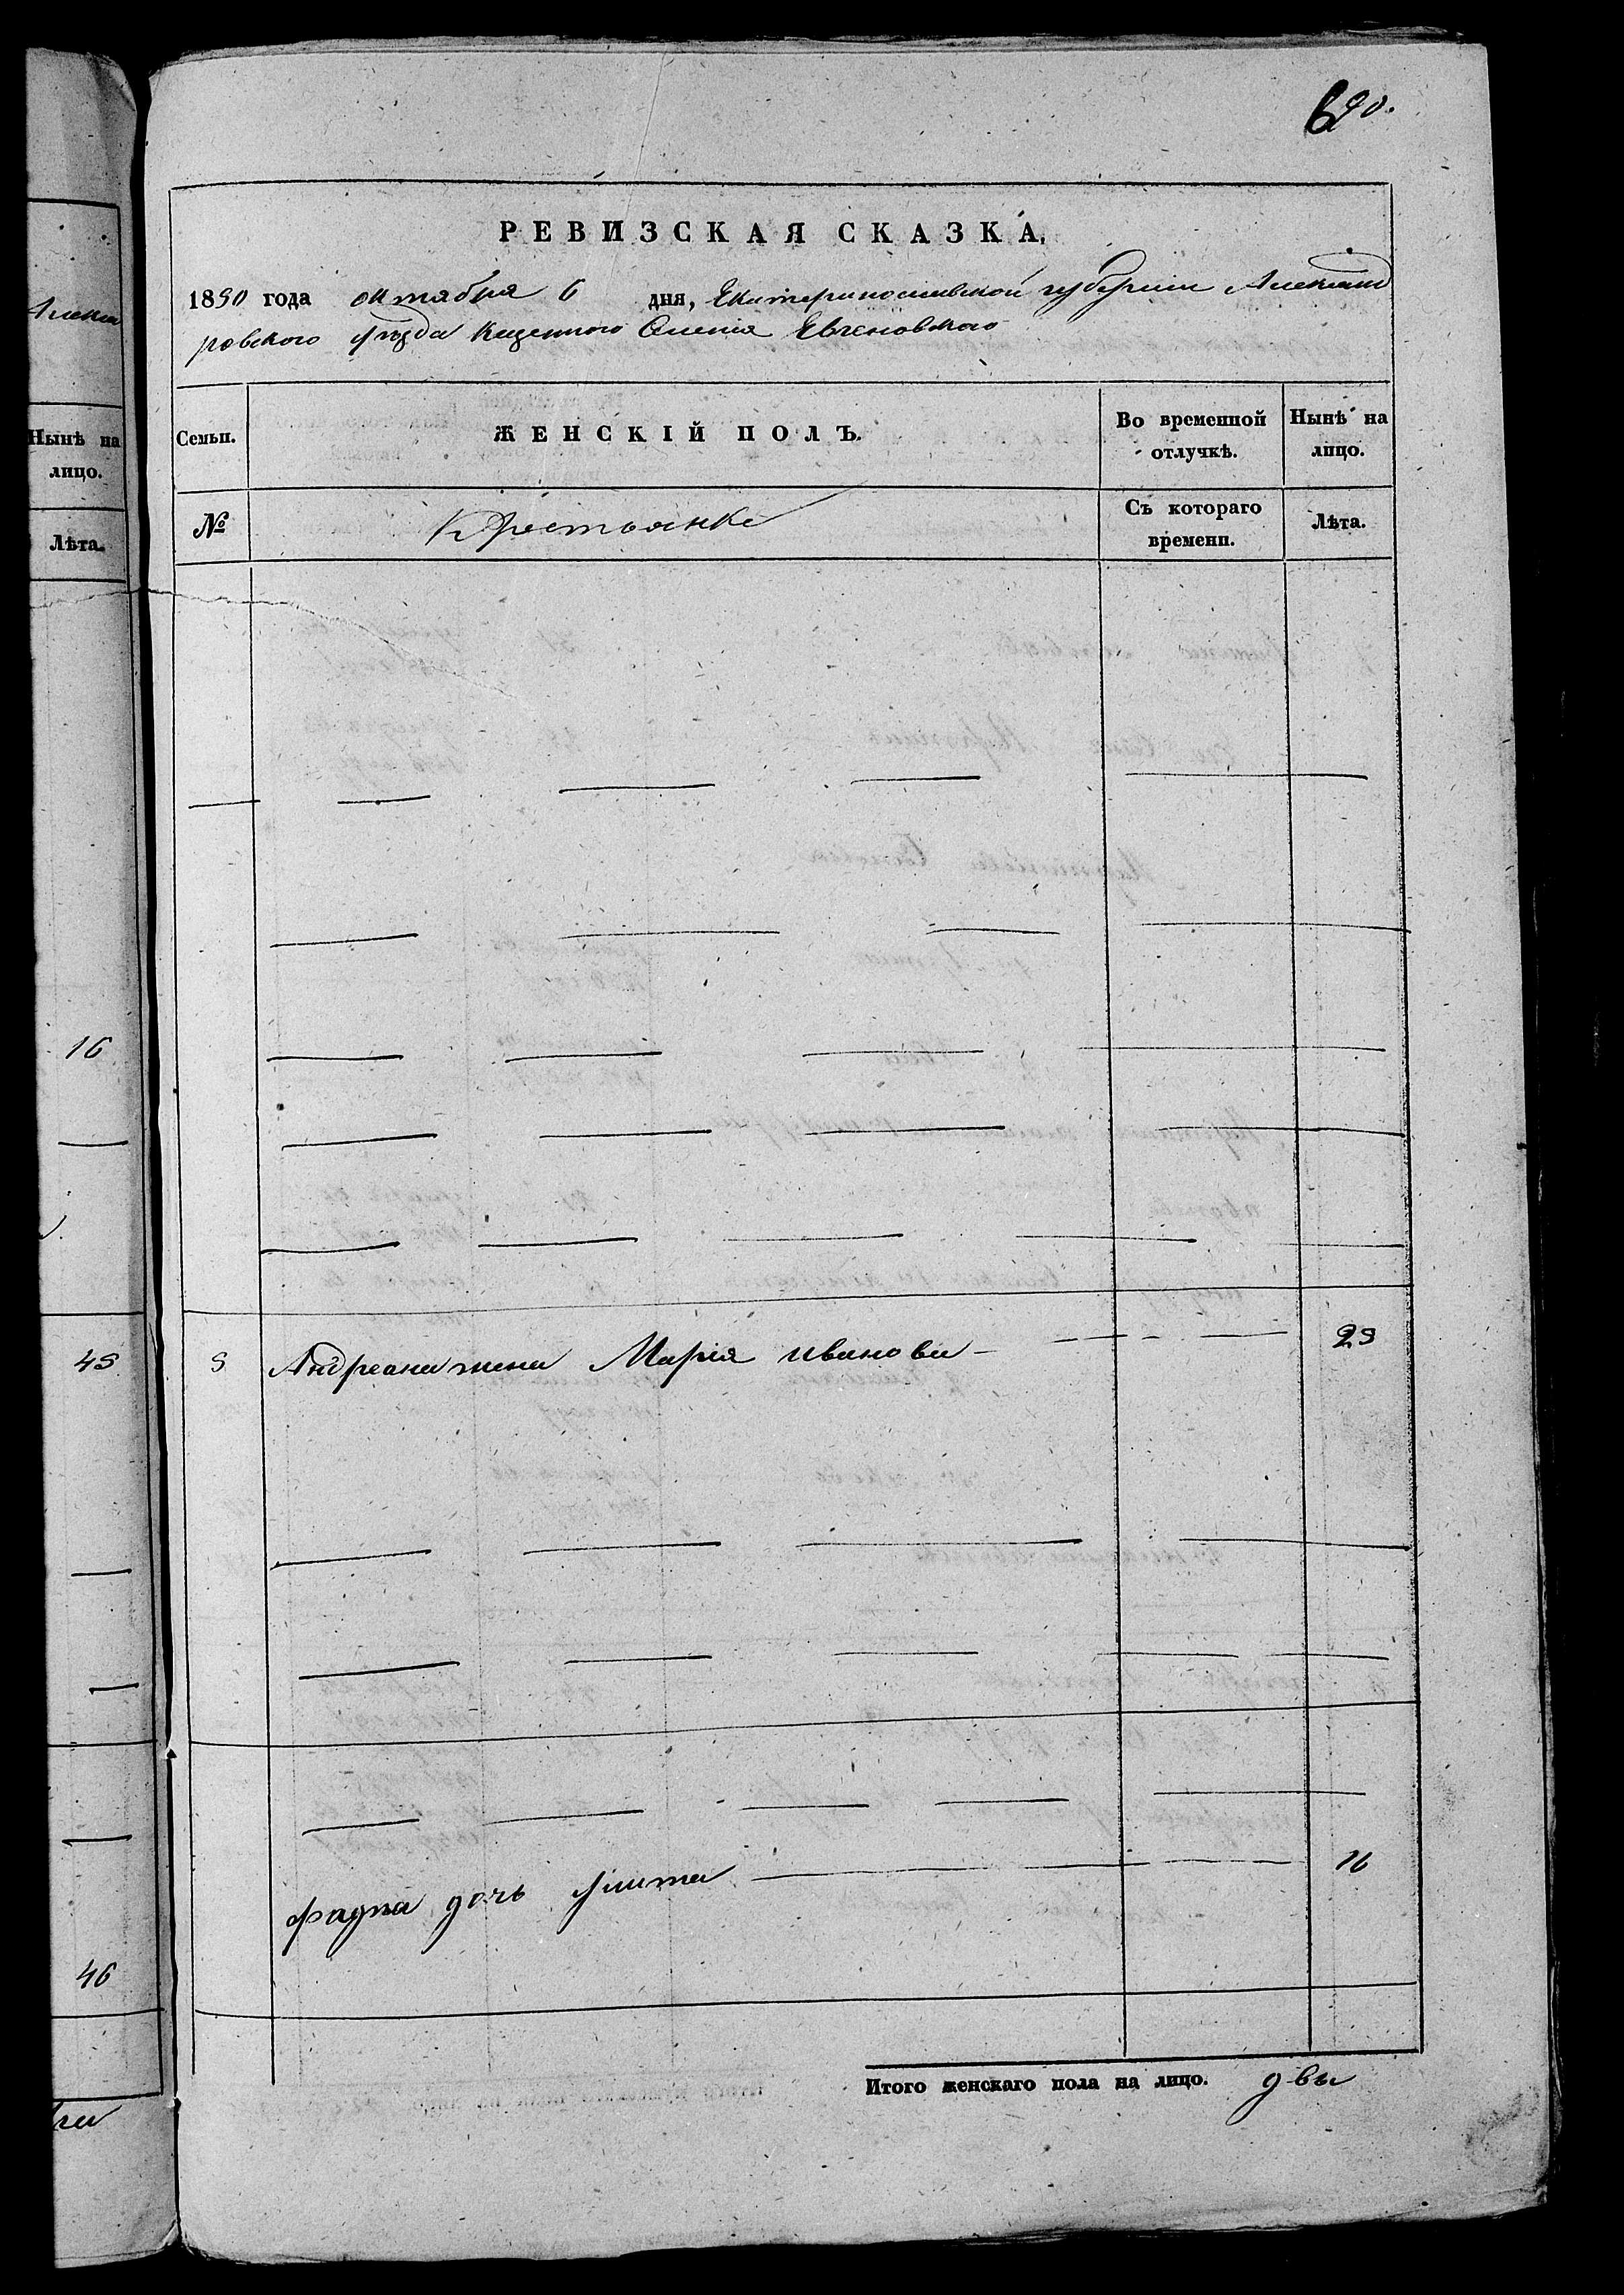 690.
РЕВИЗСКАЯ СКАЗКА,
1850 года октября 6 дня, Екатеринославской губернии Александ
ровского уезда казенного Селенія Евгеновского
Семьи.
ЖЕНСКІЙ ПОЛЪ.
Во временной отлучкѣ.
Нынѣ на лицо.
№
Крестьянке
Съ котораго времени.
Лѣта.
Алекса
Нынѣ на
лицо.
Лѣта.
16
45
46
5 Андреана жена Марія иванова 29
фадѣа дочь 16
Итого женскаго пола на лицо. двы